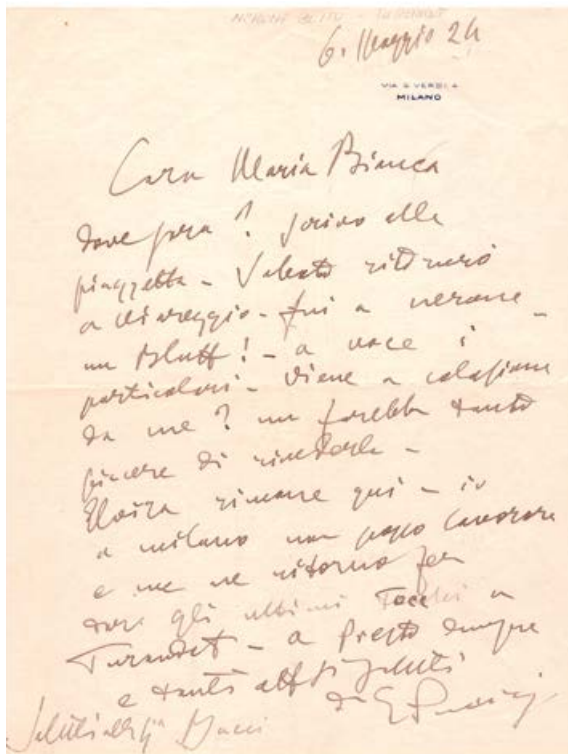 NERONE BLUFF - TURANDOT
6. Maggio 24
VIA G. VERDI 4
MILANO
Cara Maria Bianca
dove sarà? scrivo alla
piazzetta - Sabato ritornerò
a Viareggio - fui a nerone -
un Bluff! - a voce i
particolari - Viene a colazione
da me? mi farebbe tanto
piacere di rivederla -
rimane qui - io
a milano non posso lavorare
e me ne ritorno per
dare gli ultimi Tocchi a
Turandot - a Presto dunque
e tanti aff saluti
da GPuccini
Saluti alla Bacci